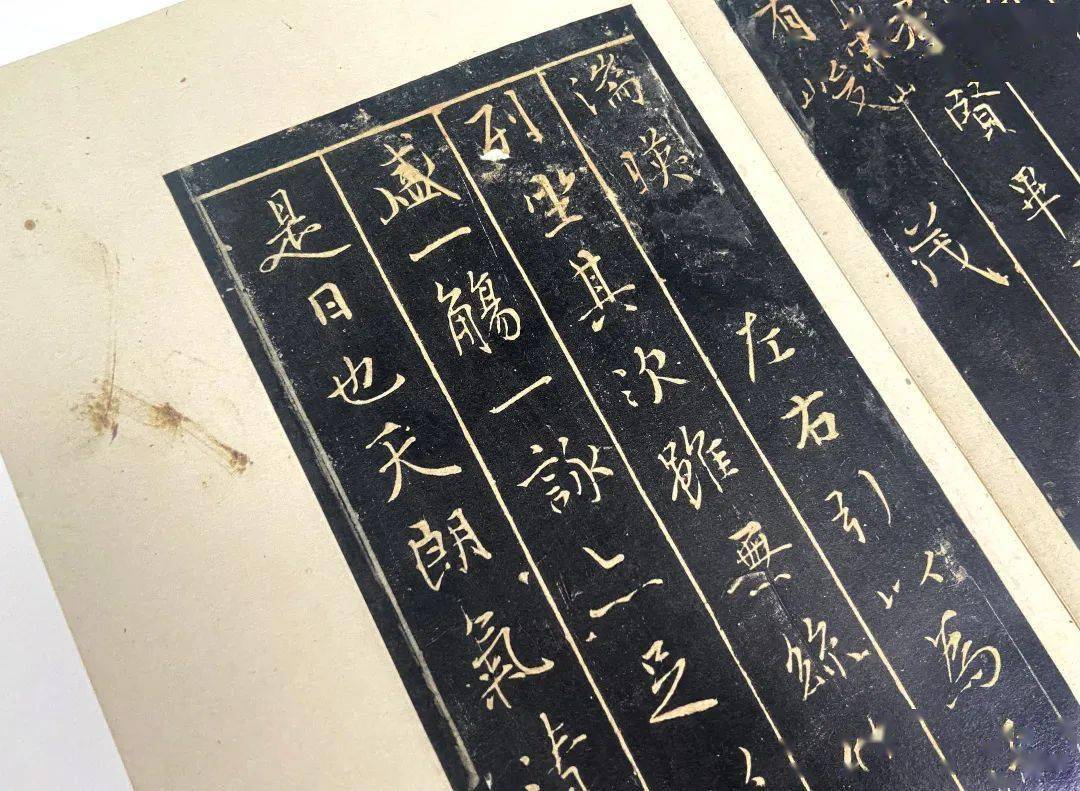 賢畢
有峻茂
湍暎左右引以為
列坐其次雖無絲竹
盛一觴一詠亦足以
是日也天朗氣清